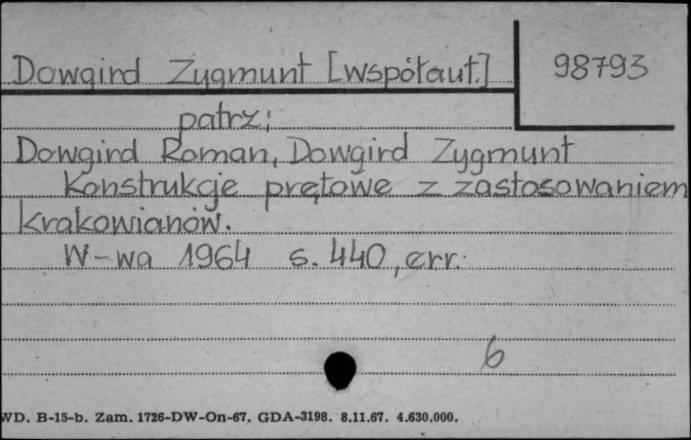 Dowgird Zygmunt [współaut.]
98793
patrz:
Dowgird Roman, Dowgird Zygmunt
Konstrukcje prętowe z zastosowaniem
krakowianów.
W-wa 1964 s. 440, err.
6
WD. B-15-b. Zam. 1726-DW-On-67. GDA-3198. 8.11.67. 4.630.000.